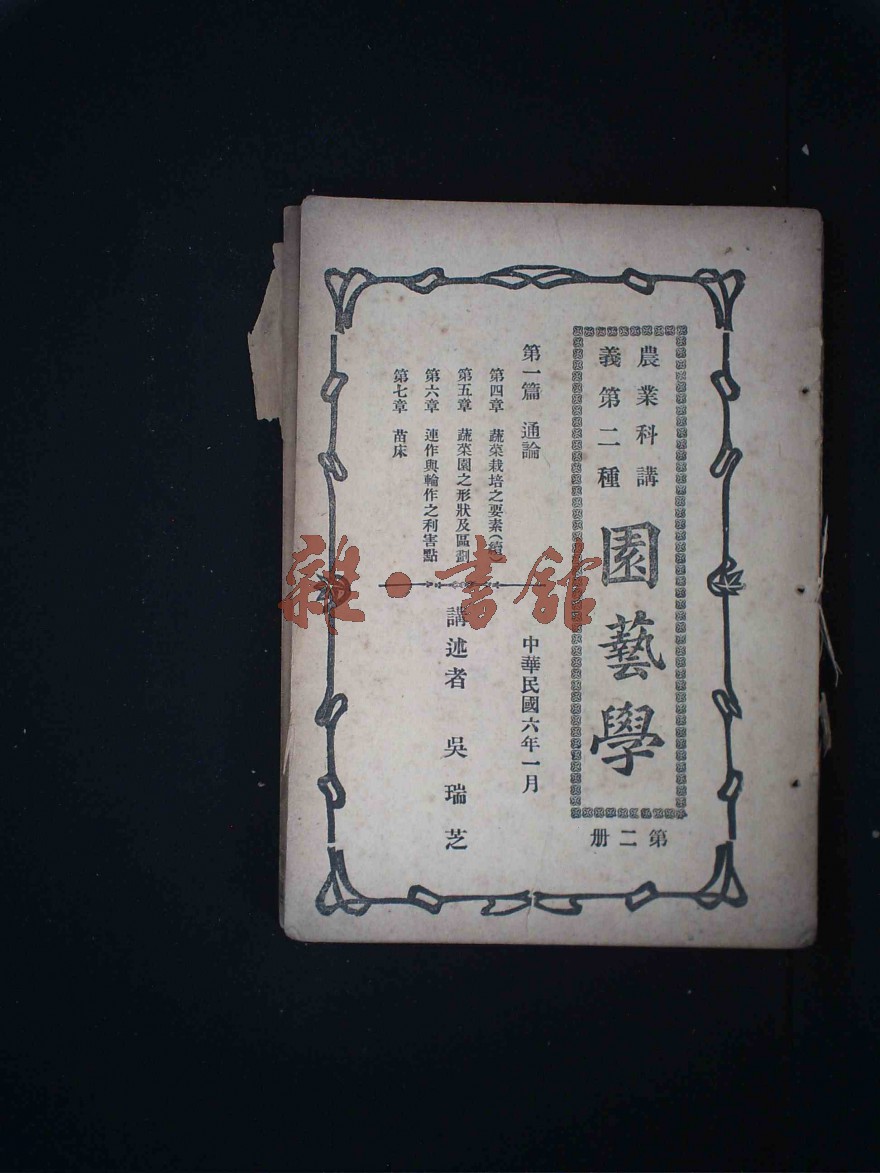 農業科講
義第二種
園藝學
第二册
第一篇 通論
第四章 蔬菜栽培之要素(續)
第五章 蔬菜園之形狀及區劃
第六章 連作與輪作之利害點
第七章 苗床
中華民國六年一月
講述者 吳瑞芝
雜·書館